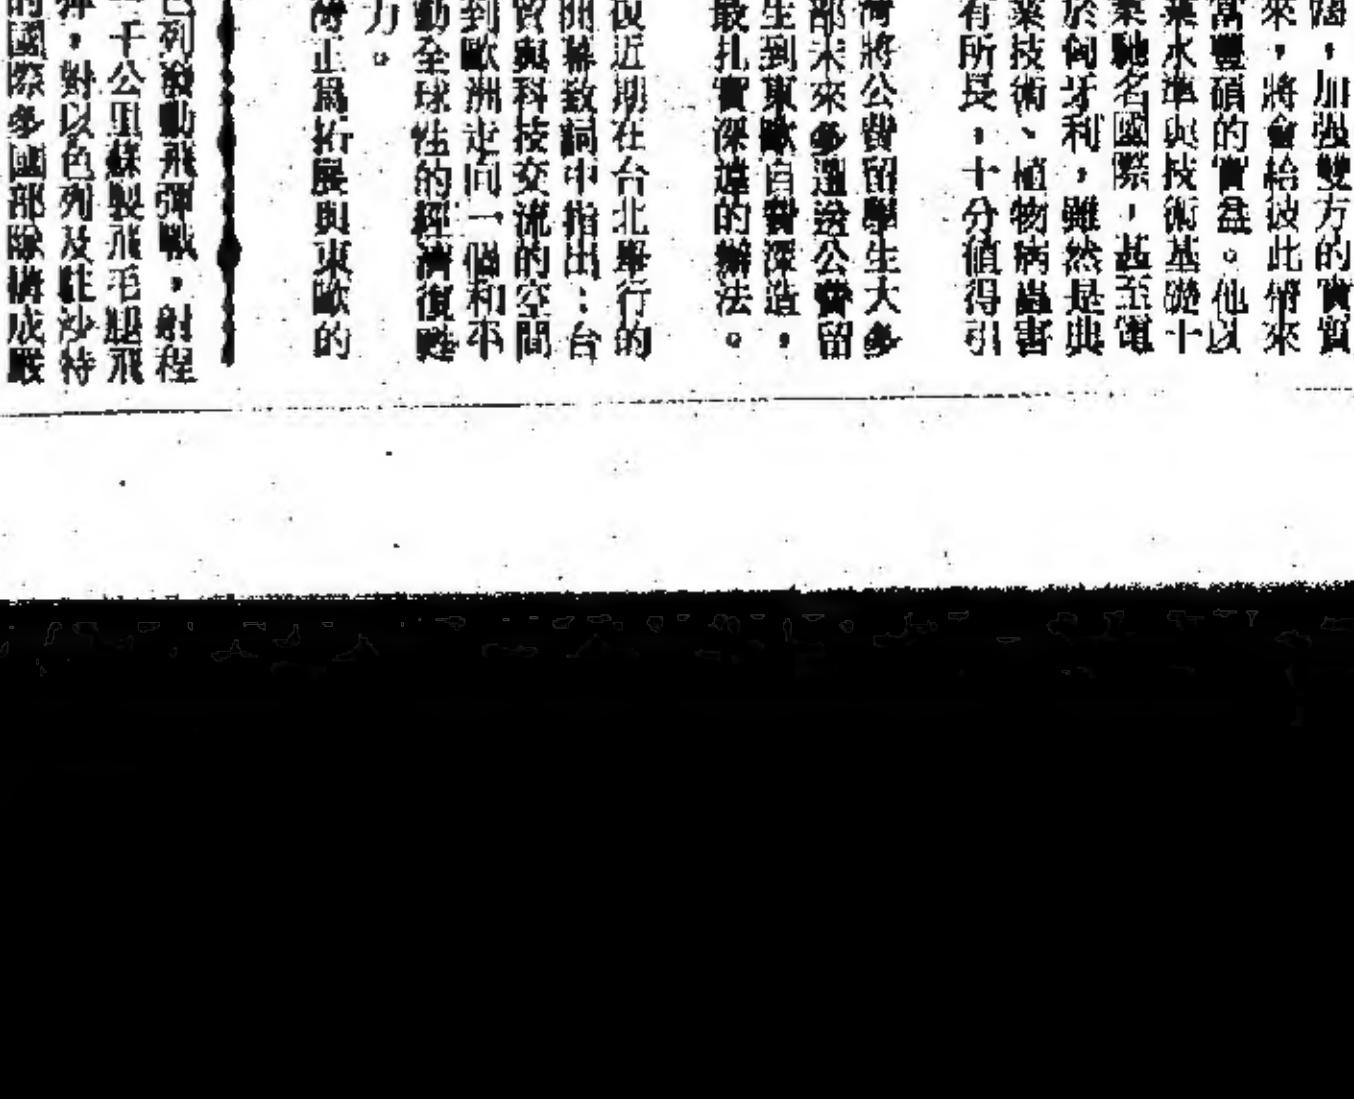 闊，加强雙方的實質
來，將會給彼此帶來
富豐碩的實益。他以
業水準與技術基礎十
業馳名國際，甚至電
於匈牙利，雖然是典
業技術、植物病蟲害
有所長，十分值得引
灣將公費留學生大多
部未來多遴送公費留
生到東歐自費深造，
最扎實深造的辦法。
復近期在台北舉行的
開幕致詞中指出：台
貿與科技交流的空間
到歐洲走向一個和平
動全球性的經濟復甦
力。
灣正爲拓展與東歐的
色列發動飛彈戰，射程
千公里蘇製飛毛腿飛
彈，對以色列及駐沙特
的國際多國部隊構成嚴